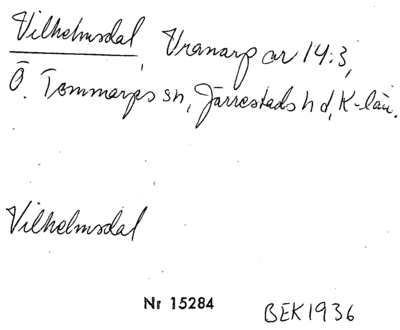 Vilhelmsdal, Vranarp ar 14:3,
Ö. Tommarps sn, Järrestads hd, K-län.
Vilhelmsdal
Nr 15284
BEK1936